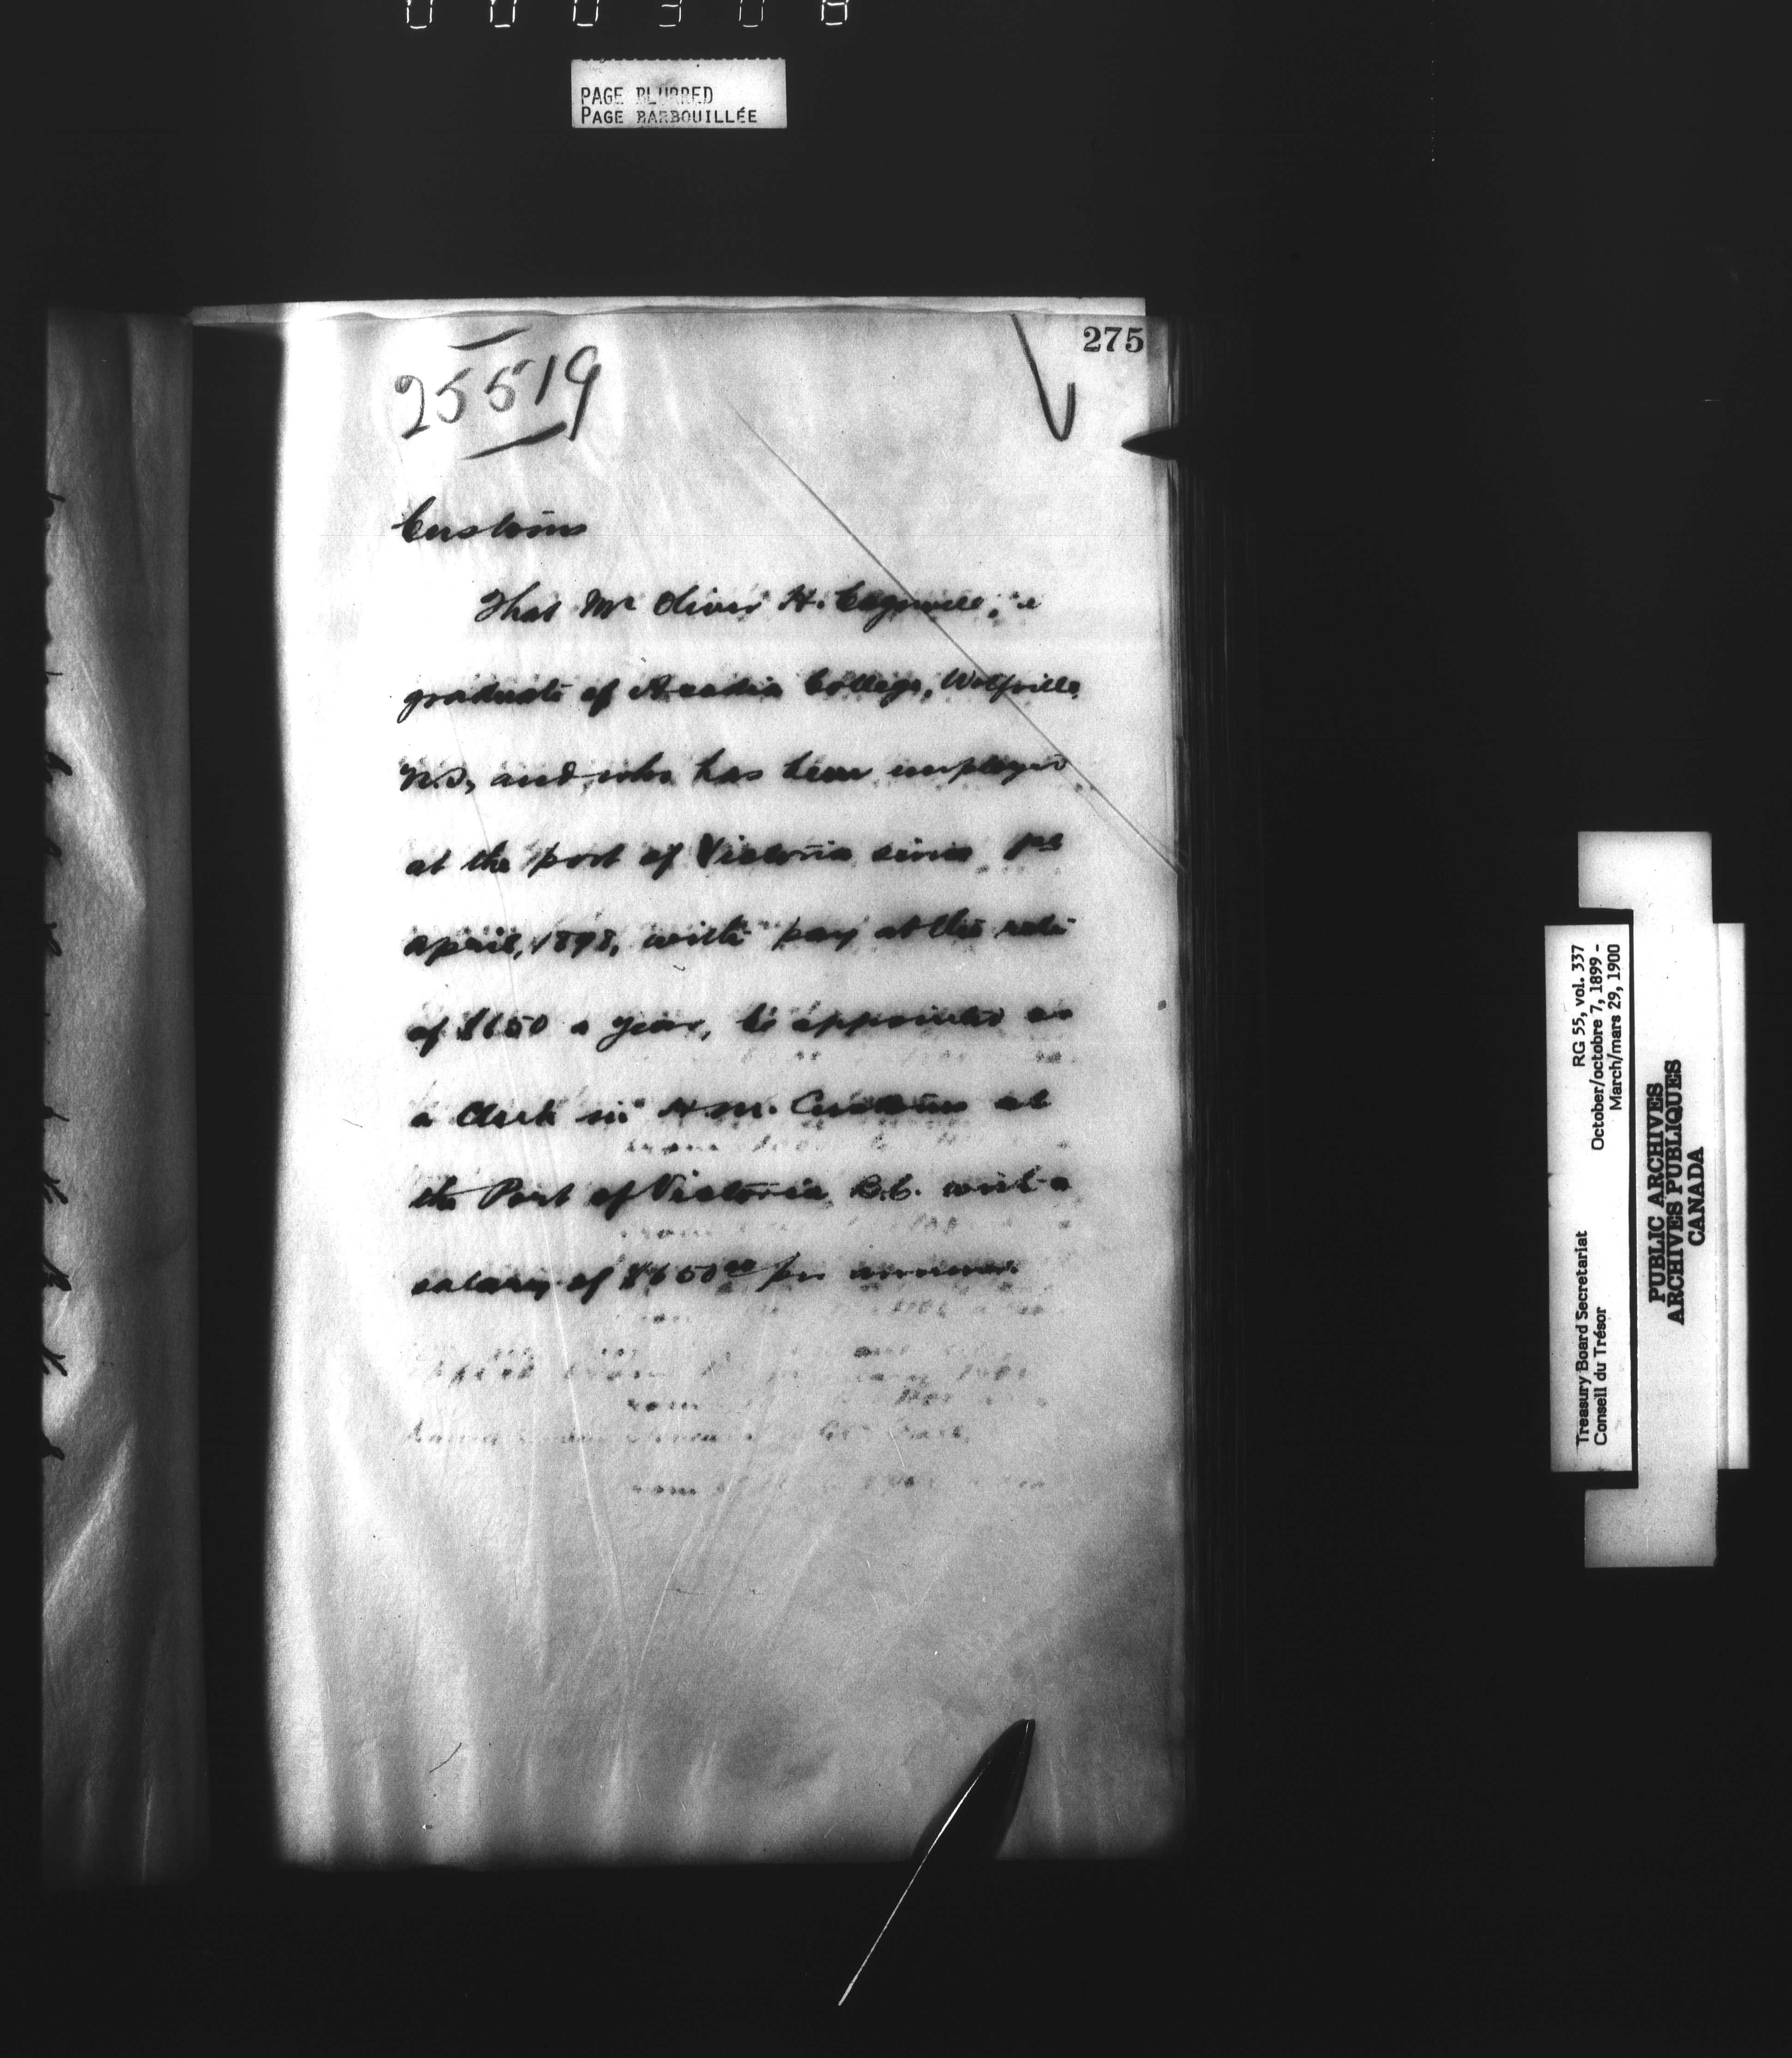 PAGE BLURRED
PAGE BARBOUILLÉE
275
25519
Customs
That Mr Oliver H. Cogswell, a
graduate of Acadia College, Wolfville,
N.S., and who has been employed
at the port of Victoria since 1st
April, 1898, with pay at the rate
of $650 a year, be appointed as
a Clerk in H.M. Customs at
the Port of Victoria, B.C. with a
salary of $650.00 per annum.
Treasury Board Secretariat RG 55, vol. 337
Conseil du Trésor October/octobre 7, 1899 -
March/mars 29, 1900
PUBLIC ARCHIVES
ARCHIVES PUBLIQUES
CANADA